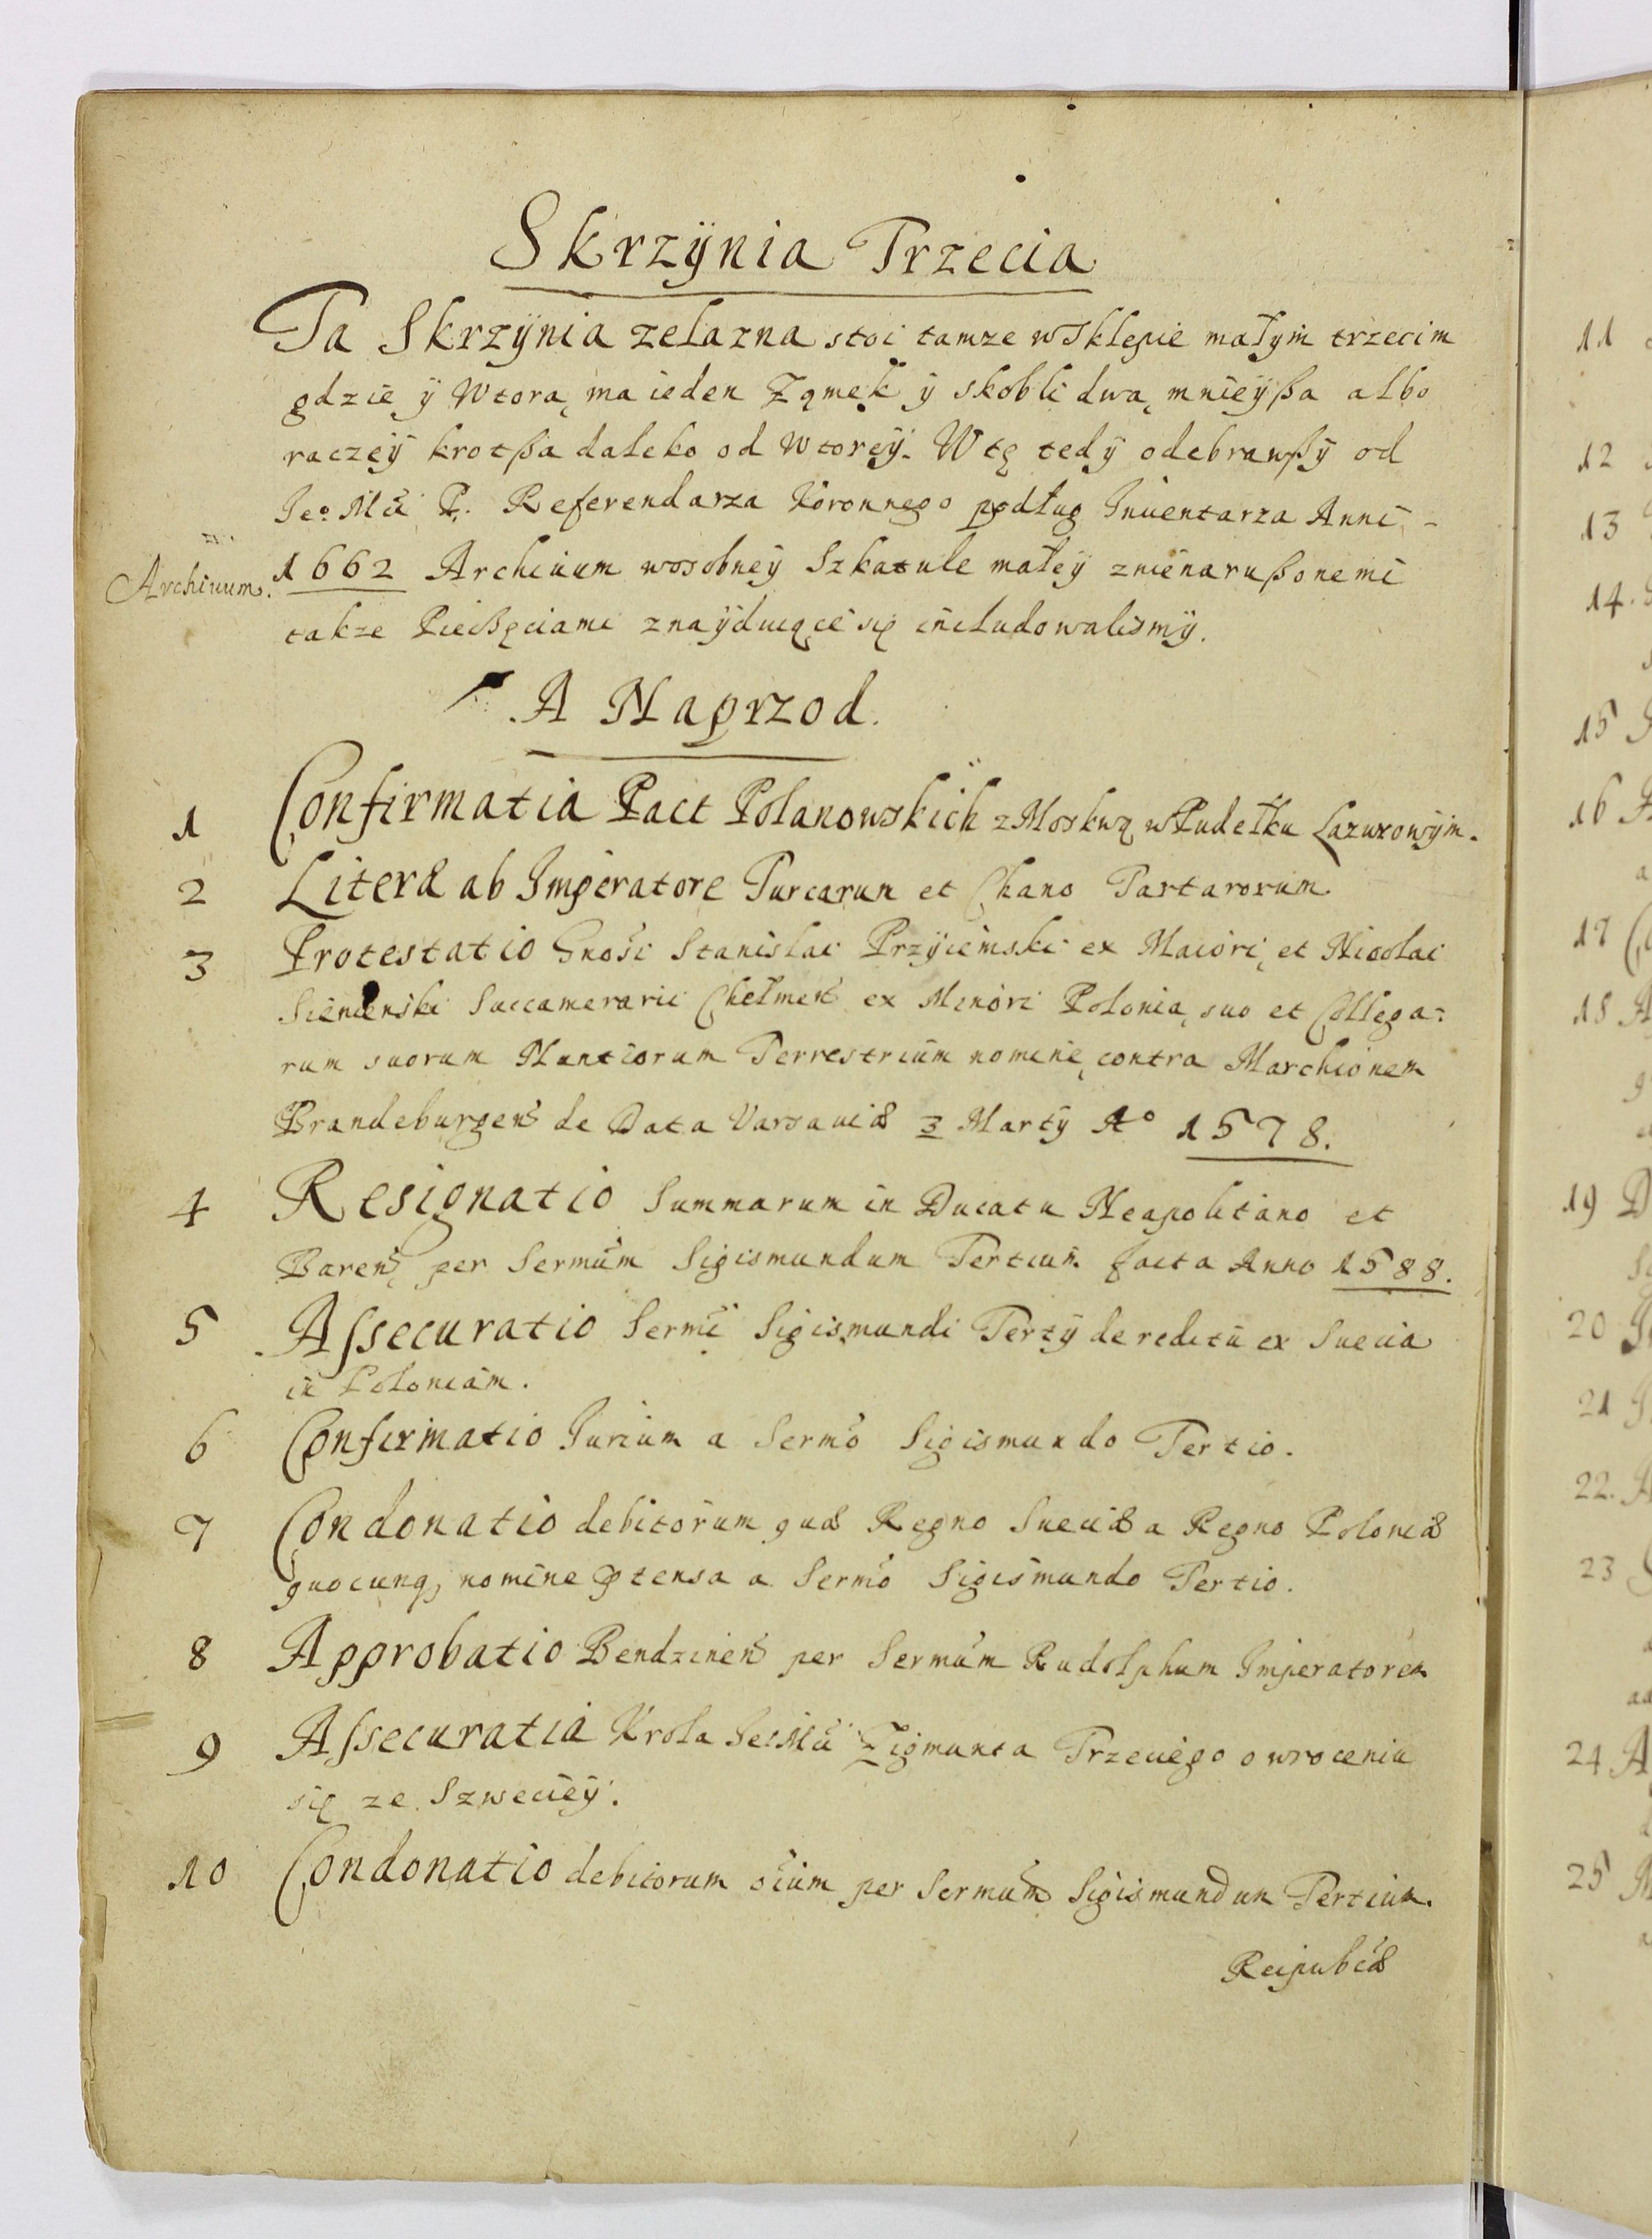 Skrzÿnia Trzecia
Ta Skrzÿnia zelazna stoi tamze w Sklepie małÿm trzecim
gdzie ÿ Wtora, ma ieden Ząmek ÿ skobli dwa, mnieÿßa albo
raczeÿ krotßa daleko od Wtoreÿ. W tę tedÿ odebrawßÿ od
Jeo Mci P. Referendarza Koronnego podług Inuentarza Anni
Archiuum. 1662 Archiuum wosobneÿ Szkatule małeÿ znienarußonemi
takze Pieczęciami znaÿduiące się includowalismÿ.
A Naprzod.
1 Confirmatia Pact Polanowskich z Moskwą w Pudełku Lazurowÿm.
2 Literæ ab Imperatore Turcarum et Chano Tartarorum
3 Protestatio Gnosi Stanislai Przÿiemski ex Maiori, et Nicolai
Sienienski Succamerarii Chełmen̄ ex Minori Polonia, suo et Collega=
rum suorum Nuntiorum Terrestrium nomine, contra Marchionem
Brandeburgen̄ de Data Varsauiæ 3 Martÿ Ao 1578.
4 Resignatio Summarum in Ducatu Neapolitano et
Baren̄, per Sermum Sigismundum Tertium facta Anno 1588.
5 Assecuratio Sermi Sigismundi Tertÿ de reditu ex Suecia
in Poloniam.
6 Confirmatio Iurium a Sermo Sigismundo Tertio.
7 Condonatio debitorum quæ Regno Sueciæ a Regno Poloniæ
quocunq; nomine ptensa a Sermo Sigismundo Tertio.
8 Approbatio Bendzinen̄ per Sermum Rudolphum Imperatorem
9 Assecuratia Krola Je: Mci Zigmunta Trzeciego o wroceniu
się ze Szwecieÿ.
10 Condonatio debitorum oium per Sermum Sigismundum Tertium.
Reipubcæ
11
12
13
14.
15
16
17
18
19
20
21
22.
23
24
25